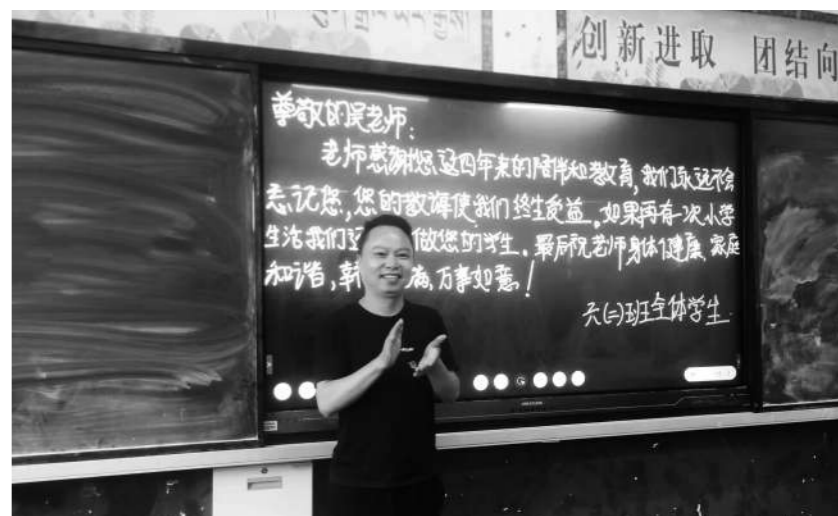 创新进取 团结向
尊敬的吴老师：
老师感谢您这四年来的陪伴和教育，我们永远不会
忘记您，您的教诲使我们终生受益。如果再有一次小学
生活我们还做您的学生。最后祝老师身体健康、家庭
和谐，幸满，万事如意！
六(二)班全体学生